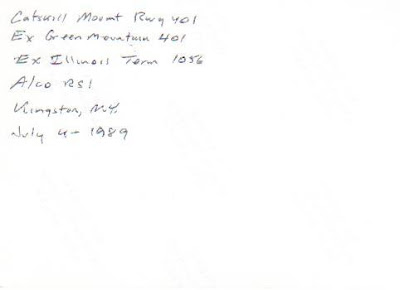 Catskill Mount Rwy 401
Ex Green Mountain 401
Ex Illinois Term 1056
Alco RS1
Kingston, NY.
July 4 - 1989